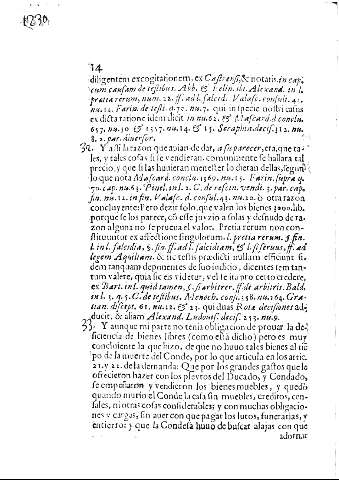 14
diligentem excogitationem, ex Castrensi, & notatis in cap.
cum causam de testibus. Abb. & Felin. ibi. Alexand. in l.
pretia rerum, num. 22. ff. ad l. falcid. Valasc. consult. 41.
nu. 12. Farin. de test. q. 70. nu. 7. qui in specie nostri casus
ex dicta ratione idem dicit in nu. 62. & Mascard. d. conclu.
657. nu. 30 & 1317. nu. 14. & 15. Seraphin. decis. 312. nu.
8. 2. par. diversor.
32. Y assi la razon que avian de dar, a su parecer, era, que ta-
les, y tales cosas si se vendieran, comunmente se hallara tal
precio, y que si las huuieran menester lo dieran dellas, segun
lo que nota Mascard. conclu. 1369. nu. 15. Farin. supra q.
70. cap. nu. 63. Pinel. in l. 2. C. de rescin. vendit. 3. par. cap.
fin. nu. 12. in fin. Valasc. d. consul. 41. nu. 20. ò otra razon
concluyente: Pero dezir solo, que valen los bienes 3000. lib.
porque se los parece, cõ esse juyzio a solas y desnudo de ra-
zon alguna no se prueua el valor. Pretia rerum non con-
stituuntur ex affectione singulorum. l. pretia rerum. § fin.
l. in l. falcidia, §. fin. ff. ad l. falcidiam, & l. si seruus, ff. ad
legem Aquiliam. & sic testis prædicti nullam efficiunt fi-
dem tanquam deponentes de suo iudicio, dicentes tem tan-
tum valere, quia sic eis videtur, vel se ita pro certo credere,
ex Bart. in l. quid tamen, §. si arbiter. ff. de arbitris. Bald.
in l. 3. q. 5. C. de testibus. Menoch. cons. 138. nu. 164. Gra-
tian. discept. 61. nu. 22. & 23. qui duas Rotæ decisiones ad-
ducit, & aliam Alexand. Ludouis. decis. 253. nu. 9.
33. Y aunque mi parte no tenia obligacion de prouar la de-
ficiencia de bienes libres (como està dicho) pero es muy
concluyente la que hizo, de que no huuo tales bienes al tiẽ-
po de la muerte del Conde, por lo que articula en los artic.
21. y 22. de la demanda: Que por los grandes gastos que lo
ofrecieron hazer con los pleytos del Ducado, y Condado,
se empeñaron y vendieron los bienes muebles, y quedò
quando murio el Conde la casa sin muebles, creditos, cen-
sales, ni otras cosas considerables; y con muchas obligacio-
nes y cargas, sin auer con que pagar los lutos, funerarias, y
entierro: y que la Condesa huuo de buscar alajas con que
adornar